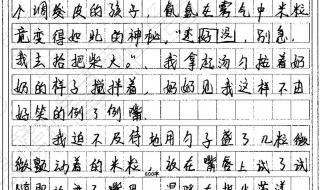 个调皮的孩子，氤氲在雾气中米粒
竟变得如此的神秘。“还好没，别急，
我去拾把柴火。”我拿起汤勺拉着奶
奶的样子搅拌着，奶奶见我这样不由
好笑的例了例嘴。
我迫不及待地用勺子盛了几粒微
微颤动着的米粒，放在嘴唇上试了试
600字